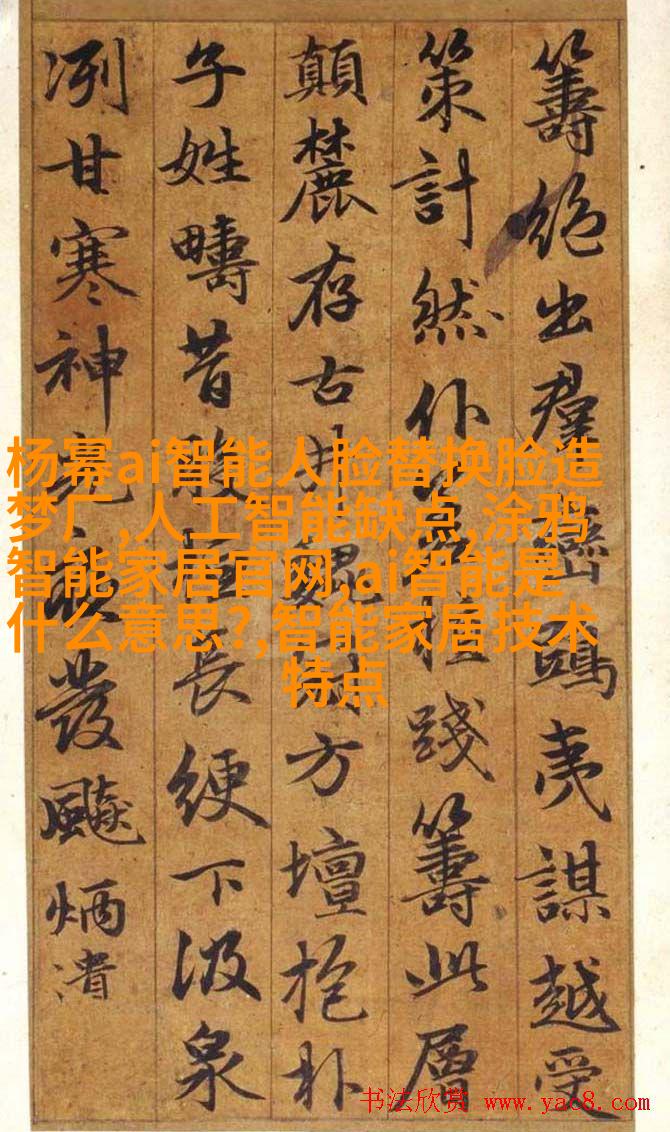 籌絕出羣鴟夷謀越受
策計然踐籌此層
顛麓存古井方壇抱朴
子姓疇昔長綆下汲泉
冽甘寒神發飈炳潰
杨幂ai智能人脸替换脸造
梦厂,人工智能缺点,涂鸦
智能家居官网,ai智能是
什么意思?,智能家居技术
特点
书法欣赏 www.yac8.com